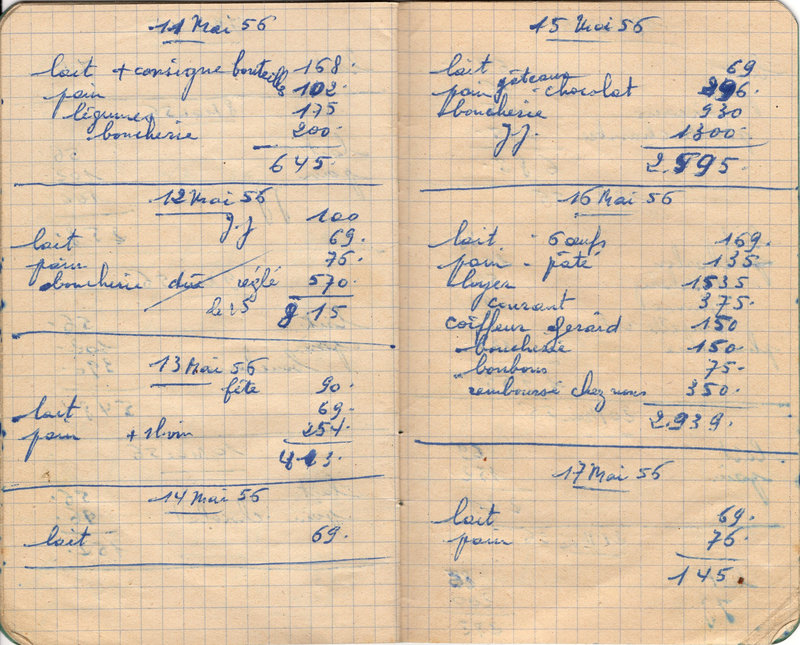 11 Mai 56
lait + consigne bouteille 168.
pain 102.
légumes 175
boucherie 200.
645.
12 Mai 56
J.J 100
lait 69.
pain 76.
boucherie dûe réglé 570.
le 15 815
13 Mai 56
fête 90.
lait 69.
pain + 1l vin 254.
413.
14 Mai 56
lait 69.
15 Mai 56
lait 69
pain gâteaux chocolat 296.
boucherie 930
J.J. 1300.
2.595.
16 Mai 56
lait - 6 œufs 169.
pain - pâté 135
loyer 1535
courant 375.
coiffeur Gérard 150
boucherie 150.
bonbons 75.
remboursé chez nous 350.
2.939.
17 Mai 56
lait 69.
pain 76.
145.